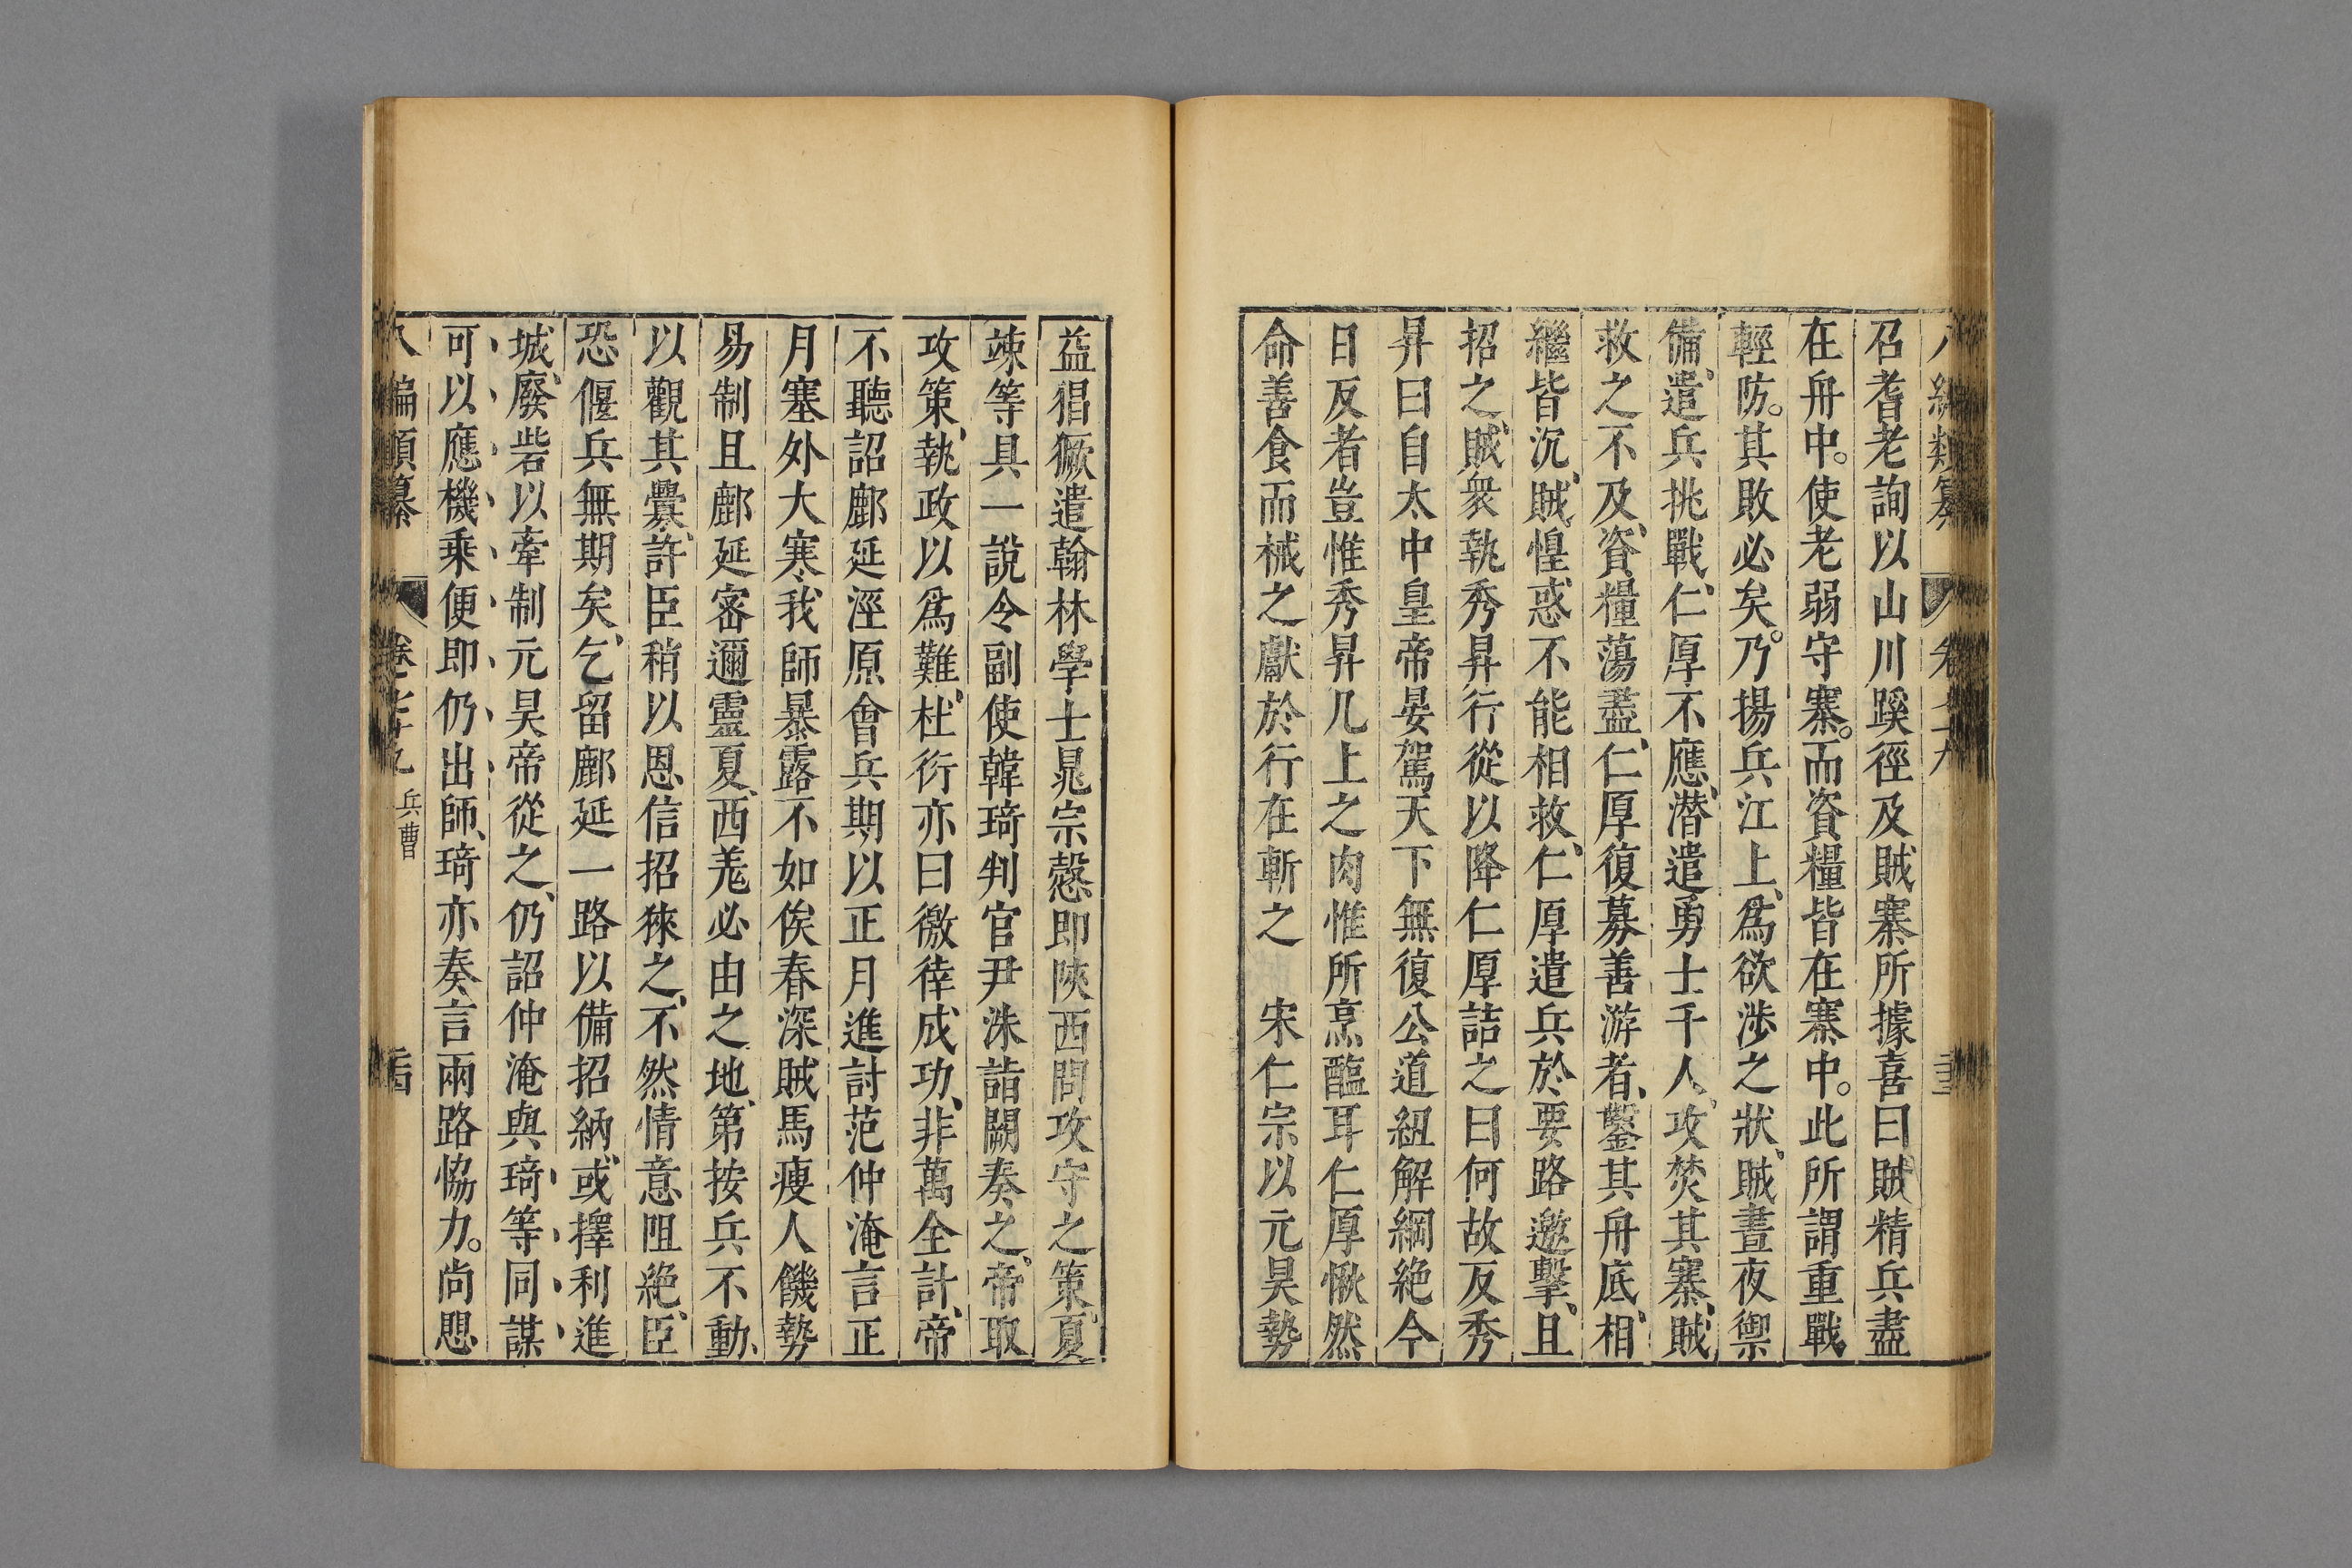 召耆老詢以山川蹊徑及賊寨所據喜曰賊精兵盡
在舟中。使老弱守寨。而資糧皆在寨中。此所謂重戰
輕防。其敗必矣。乃揚兵江上、爲欲涉之狀、賊晝夜禦
備、遣兵挑戰、仁厚不應、潛遣勇士千人、攻焚其寨、賊
救之不及、資糧蕩盡、仁厚復募善游者、鑿其舟底、相
繼皆沉、賊惶惑不能相救、仁厚遣兵於要路邀擊、且
招之、賊衆執秀昇行從以降仁厚詰之曰何故反秀
昇曰自太中皇帝晏駕天下無復公道紐解綱絶今
日反者豈惟秀昇几上之肉惟所烹醢耳仁厚愀然
命善食而械之獻於行在斬之　宋仁宗以元昊勢
益猖獗遣翰林學士晁宗慤即陝西問攻守之策、夏
竦等具一說令副使韓琦判官尹洙詣闕奏之、帝取
攻策、執政以爲難、杜衍亦曰徼倖成功、非萬全計、帝
不聽詔鄜延涇原會兵期以正月進討范仲淹言正
月塞外大寒、我師暴露不如俟春深賊馬瘦人饑勢
易制且鄜延密邇靈夏、西羌必由之地、第按兵不動、
以觀其釁、許臣稍以恩信招徠之、不然情意阻絶、臣
恐偃兵無期矣、乞留鄜延一路以備招納、或擇利進
城、廢砦以牽制元昊帝從之、仍詔仲淹與琦等同謀
可以應機乘便即仍出師、琦亦奏言兩路恊力。尚思
八編類纂　卷七十九　兵曹　二十四